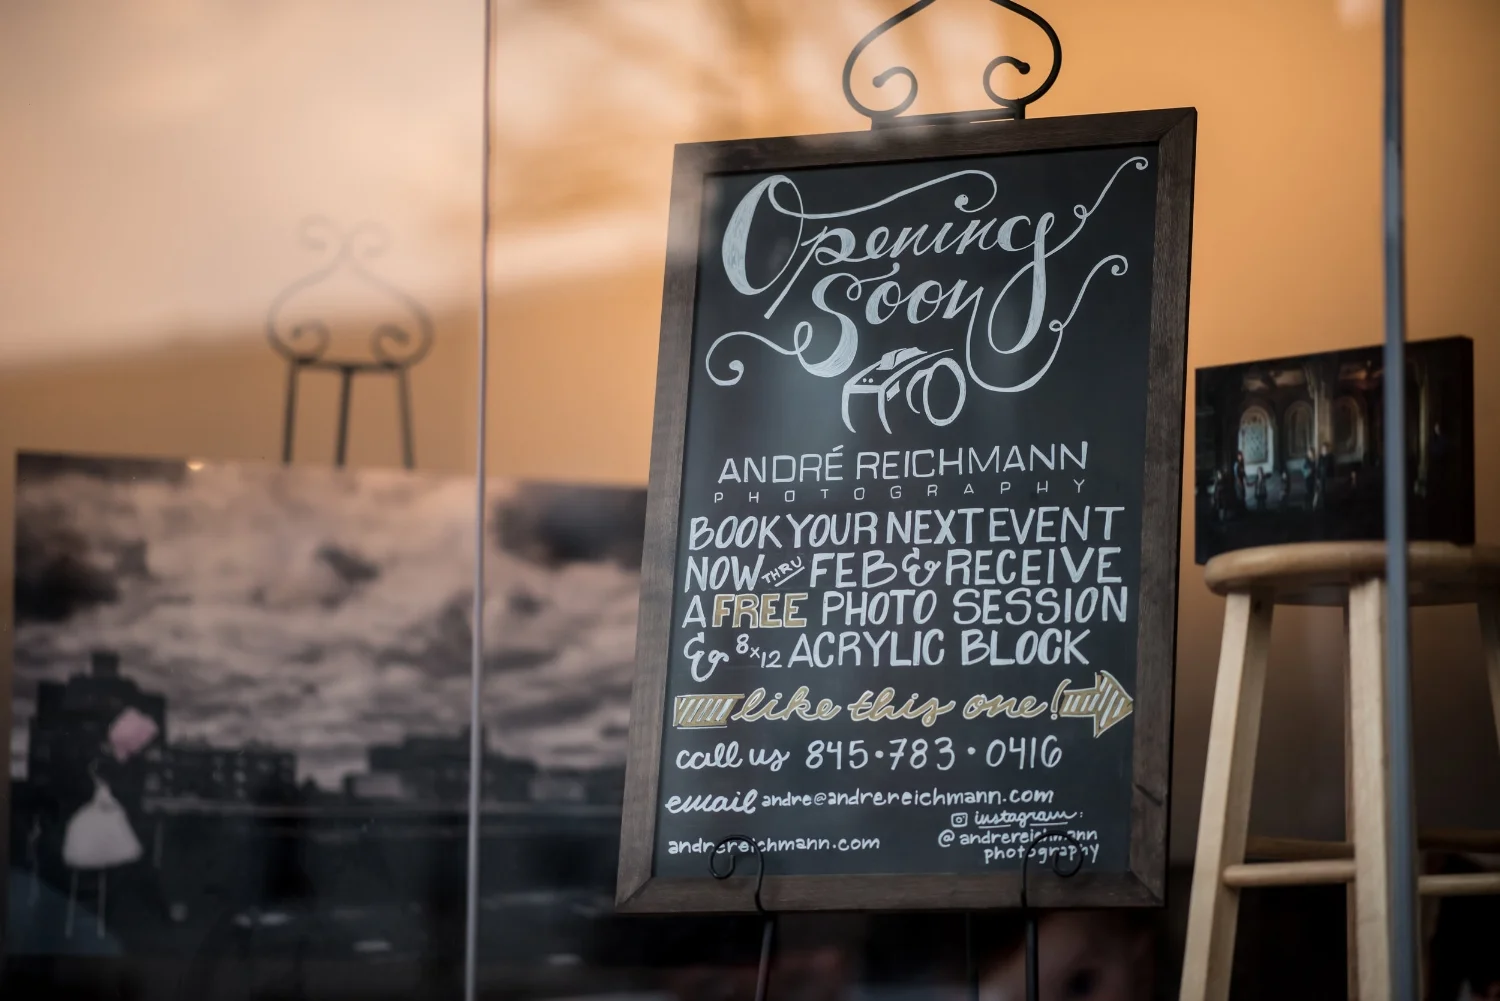 Opening
Soon
ANDRÉ REICHMANN
PHOTOGRAPHY
BOOK YOUR NEXT EVENT
NOW THRU FEB & RECEIVE
A FREE PHOTO SESSION
& 8x12 ACRYLIC BLOCK
like this one!
call us 845·783·0416
email andre@andrereichmann.com
instagram:
andrereichmann.com @andrereichmann
photography